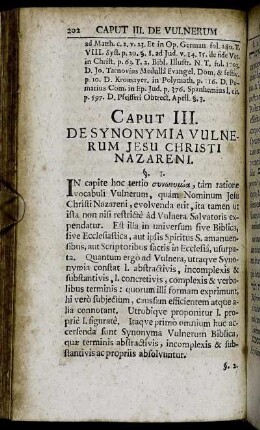 202 CAPUT III. DE VULNERUM
ad Matth. c. 2. v. 23. Et in Op. German. fol. 180. T.
VIII. Syst. p. 20. §. 8. ad Jud. v. 24. It. de fide Vet.
in Christ. p. 63. T. 2. Bibl. Illustr. N. T. fol. 1703.
D. Jo. Tarnovius Medulla Evangel. Dom. & festiv.
p. 10. D. Kromayer. in Polymath. p. 116. D. Po-
marius Com. in Ep. Jud. p. 376. Spanhemius l. cit.
p. 597. D. Pfeifferi Obtrect. Apell. §. 3.
CAPUT III.
DE SYNONYMIA VULNE-
RUM JESU CHRISTI
NAZARENI.
§. I.
IN capite hoc tertio συνωνυμία, tàm ratione
vocabuli Vulnerum, quàm Nominum Jesu
Christi Nazareni, evolvenda erit, ita tamen ut
ista non nisi restrictè ad Vulnera Salvatoris ex-
pendatur. Est illa in universum sive Biblica,
sive Ecclesiastica, aut ipsis Spiritus S. amanuen-
sibus, aut Scriptoribus sacris in Ecclesiâ, usurpa-
ta. Quantum ergò ad Vulnera, utraqve Syno-
nymia constat l. abstractivis, incomplexis &
substantivis, l. concretivis, complexis & verba-
libus terminis: quorum illi formam exprimunt,
hi verò subjectum, ejusque efficientem atque a-
lia connotant. Utrobiqve proponitur l. pro-
priè l. figuratè. Itaqve primo omnium huc ac-
cersenda sunt Synonyma Vulnerum Biblica,
quæ terminis abstractivis, incomplexis & sub-
stantivis ac propriis absolvuntur.
§. 2.